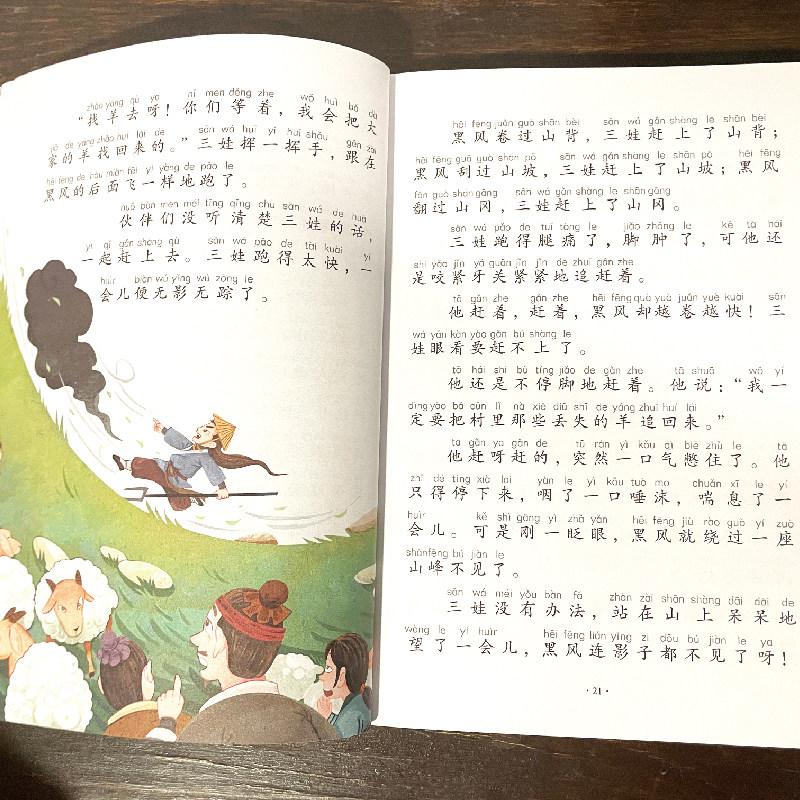 zhǎo yáng qù ya nǐ men děng zhe wǒ huì bǎ dà
“找羊去呀！你们等着，我会把大
jiā de yáng zhǎo huí lái de sān wá huī yì huī shǒu gēn zài
家的羊找回来的。”三娃挥一挥手，跟在
hēi fēng de hòu miàn fēi yí yàng de pǎo le
黑风的后面飞一样地跑了。
huǒ bàn men méi tīng qīng chu sān wá de huà
伙伴们没听清楚三娃的话，
yì qǐ gǎn shàng qù sān wá pǎo de tài kuài yí
一起赶上去。三娃跑得太快，一
huìr biàn wú yǐng wú zōng le
会儿便无影无踪了。
hēi fēng juǎn guò shān bèi sān wá gǎn shàng le shān bèi
黑风卷过山背，三娃赶上了山背；
hēi fēng guā guò shān pō sān wá gǎn shàng le shān pō hēi fēng
黑风刮过山坡，三娃赶上了山坡；黑风
fān guò shān gāng sān wá gǎn shàng le shān gāng
翻过山冈，三娃赶上了山冈。
sān wá pǎo de tuǐ tòng le jiǎo zhǒng le kě tā hái
三娃跑得腿痛了，脚肿了，可他还
shì yǎo jǐn yá guān jǐn jǐn de zhuī gǎn zhe
是咬紧牙关紧紧地追赶着。
tā gǎn zhe gǎn zhe hēi fēng què yuè juǎn yuè kuài sān
他赶着，赶着，黑风却越卷越快！三
wá yǎn kàn yào gǎn bú shàng le
娃眼看要赶不上了。
tā hái shi bù tíng jiǎo de gǎn zhe tā shuō wǒ yí
他还是不停脚地赶着。他说：“我一
dìng yào bǎ cūn lǐ nà xiē diū shī de yáng zhuī huí lái
定要把村里那些丢失的羊追回来。”
tā gǎn ya gǎn de tū rán yì kǒu qì biē zhù le tā
他赶呀赶的，突然一口气憋住了。他
zhǐ dé tíng xià lái yàn le yì kǒu tuò mo chuǎn xī le yí
只得停下来，咽了一口唾沫，喘息了一
huìr kě shì gāng yì zhǎ yǎn hēi fēng jiù rào guò yí zuò
会儿。可是刚一眨眼，黑风就绕过一座
shān fēng bú jiàn le
山峰不见了。
sān wá méi yǒu bàn fǎ zhàn zài shān shàng dāi dāi de
三娃没有办法，站在山上呆呆地
wàng le yí huìr hēi fēng lián yǐng zi dōu bú jiàn le ya
望了一会儿，黑风连影子都不见了呀！
·21·